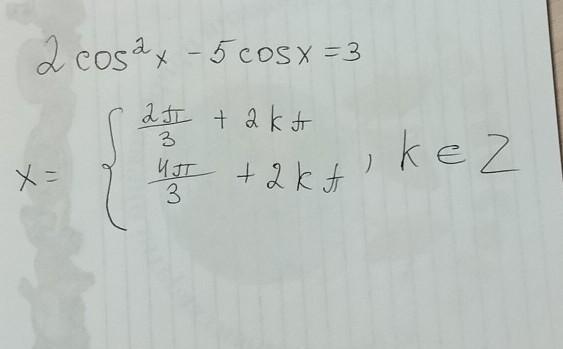 2cos²x - 5cosx = 3
x = { 2π/3 + 2kπ
4π/3 + 2kπ , k ∈ Z